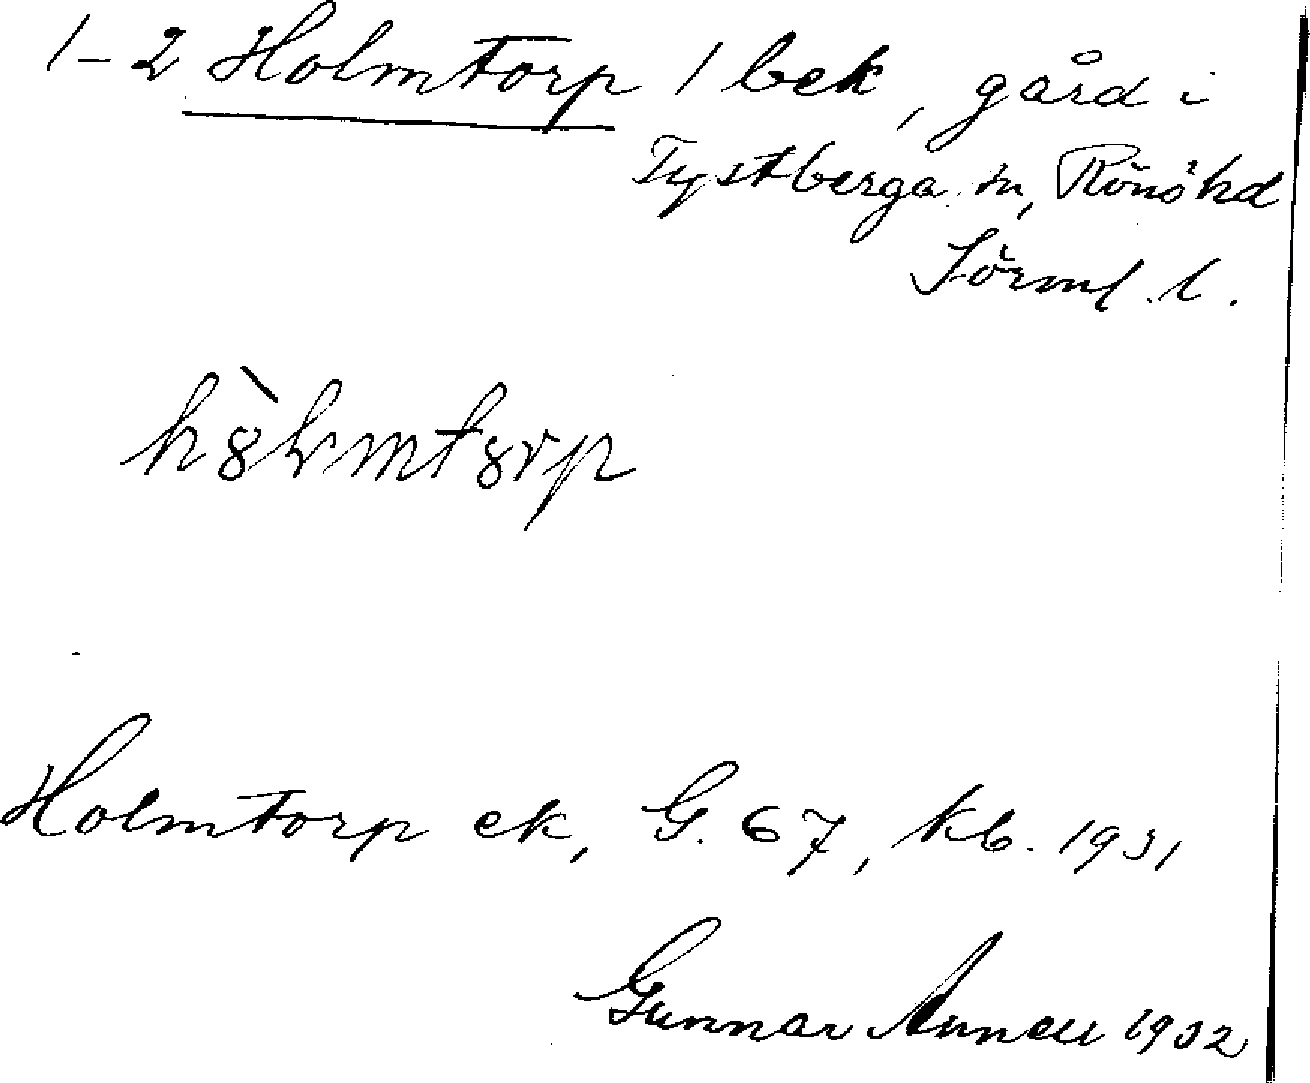 1-2 Holmtorp / bek, gård i
Tystberga sn, Rönö hd
Sörml. l.
hò̀lmtorp
Holmtorp ek, G. 67, kb. 1931
Gunnar Annell 1932